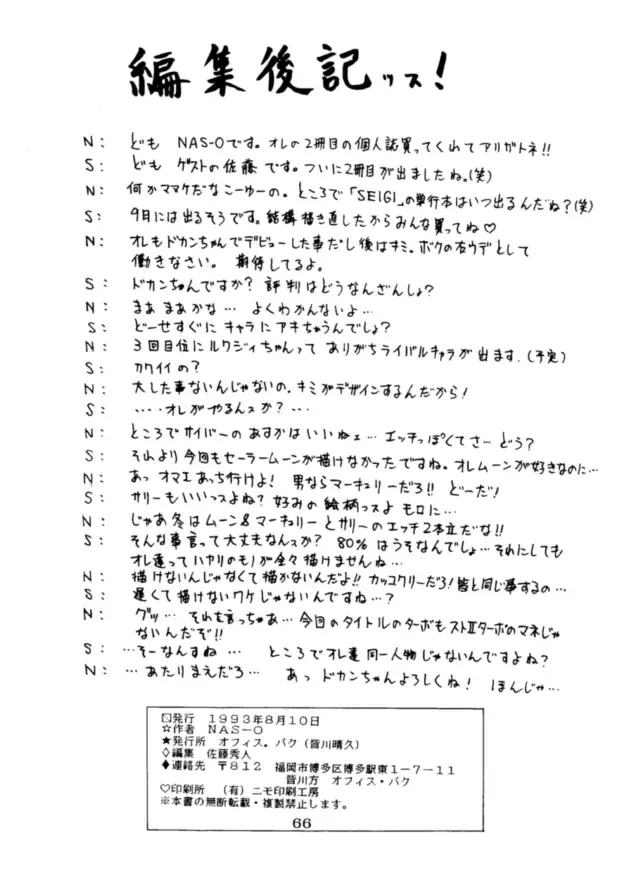 編集後記ッス!
N: ども NAS-Oです。オレの2冊目の個人誌買ってくれてアリガトネ!!
S: ども ゲストの佐藤です。ついに2冊目が出ましたね。(笑)
N: 何かマヌケだなこーゆーの。ところで「SEIGI」の単行本はいつ出るんだね?(笑)
S: 9月には出るそうです。結構描き直したからみんな買ってね♡
N: オレもドカンちゃんでデビューした事だし後はキミ、ボクの右ウデとして
働きなさい。期待してるよ。
S: ドカンちゃんですか? 評判はどうなんざんしょ?
N: まぁ まぁかな… よくわかんないよ…
S: どーせすぐに キャラに アキちゃうんでしょ?
N: 3回目位にルクジィちゃんって ありがちライバルキャラが出ます.(予定)
S: カワイイの?
N: 大した事ないんじゃないの。キミがデザインするんだから!
S: ‥‥オレがやるんスか?…
N: ところでサイバーの あすかは いいねェ… エッチっぽくてさ… どう?
S: それより今回もセーラームーンが描けなかったですね。オレムーンが好きなのに…
N: あっ オマエあっち行けよ! 男ならマーキュリーだろ!! どーだ!
S: サリーもいいっスよね? 好みの絵柄っスよ モロに…
N: じゃあ冬はムーン&マーキュリーとサリーのエッチ2本立だな!!
S: そんな事言って大丈夫なんスか? 80%はうそなんでしょ…それにしても
オレ達ってハヤリのモノが全々描けませんね…
N: 描けないんじゃなくて描かないんだよ!! カッコクリーだろ!皆と同じ事するの…
S: 遅くて描けないワケじゃないんですね…?
N: グッ… それを言っちゃぁ…今回のタイトルのターボもストⅡターボのマネじゃ
ないんだぞ!!
S: …そーなんすね … ところでオレ達同一人物じゃないんですよね?
N: …あたりまえだろ… あっ ドカンちゃんよろしくね! ほんじゃ…
発行 1993年8月10日
☆作者 NAS-O
★発行所 オフィス.バク(皆川晴久)
◇編集 佐藤秀人
◆連絡先 〒812 福岡市博多区博多駅東1-7-11
皆川方 オフィス・バク
♡印刷所 (有)ニモ印刷工房
※本書の無断転載・複製禁止します。
66